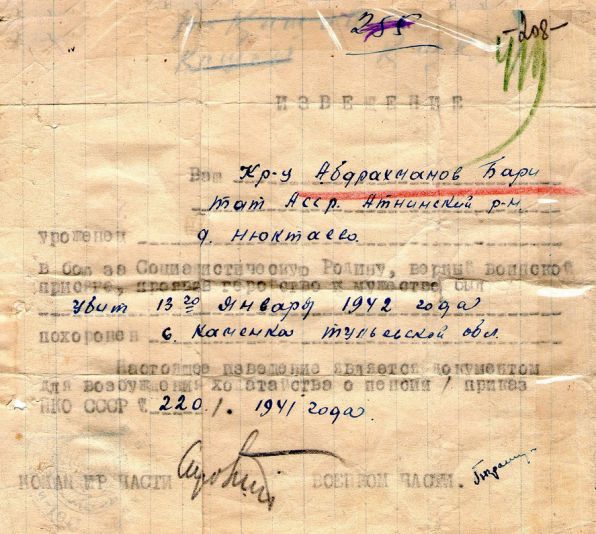 285
-208-
ИЗВЕЩЕНИЕ
Ваш Кр-ц Абдрахманов Бари
тат Асср. Атнинский р-н.
уроженец д. Нюктаево.
в бою за Социалистическую Родину, верный воинской
присяге, проявив геройство и мужество был
убит 13 го января 1942 года
похоронен с. Каченка тульевской обл.
Настоящее извещение является документом
для возбуждения ходатайства о пенсии / приказ
НКО СССР № 220./. 1941 года.
КОМАНДИР ЧАСТИ ВОЕНКОМ ЧАСТИ.